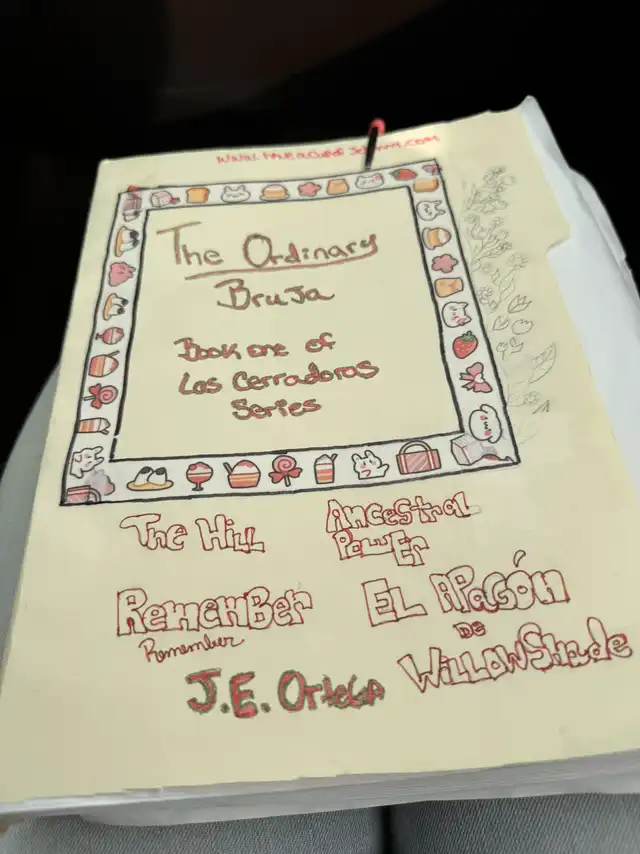 The Ordinary
Bruja
Book one of
Las Cerradoras
Series
The Hill
Ancestral
Power
Remember
Remember
El Apagón
de
WillowShade
J.E. Ortega